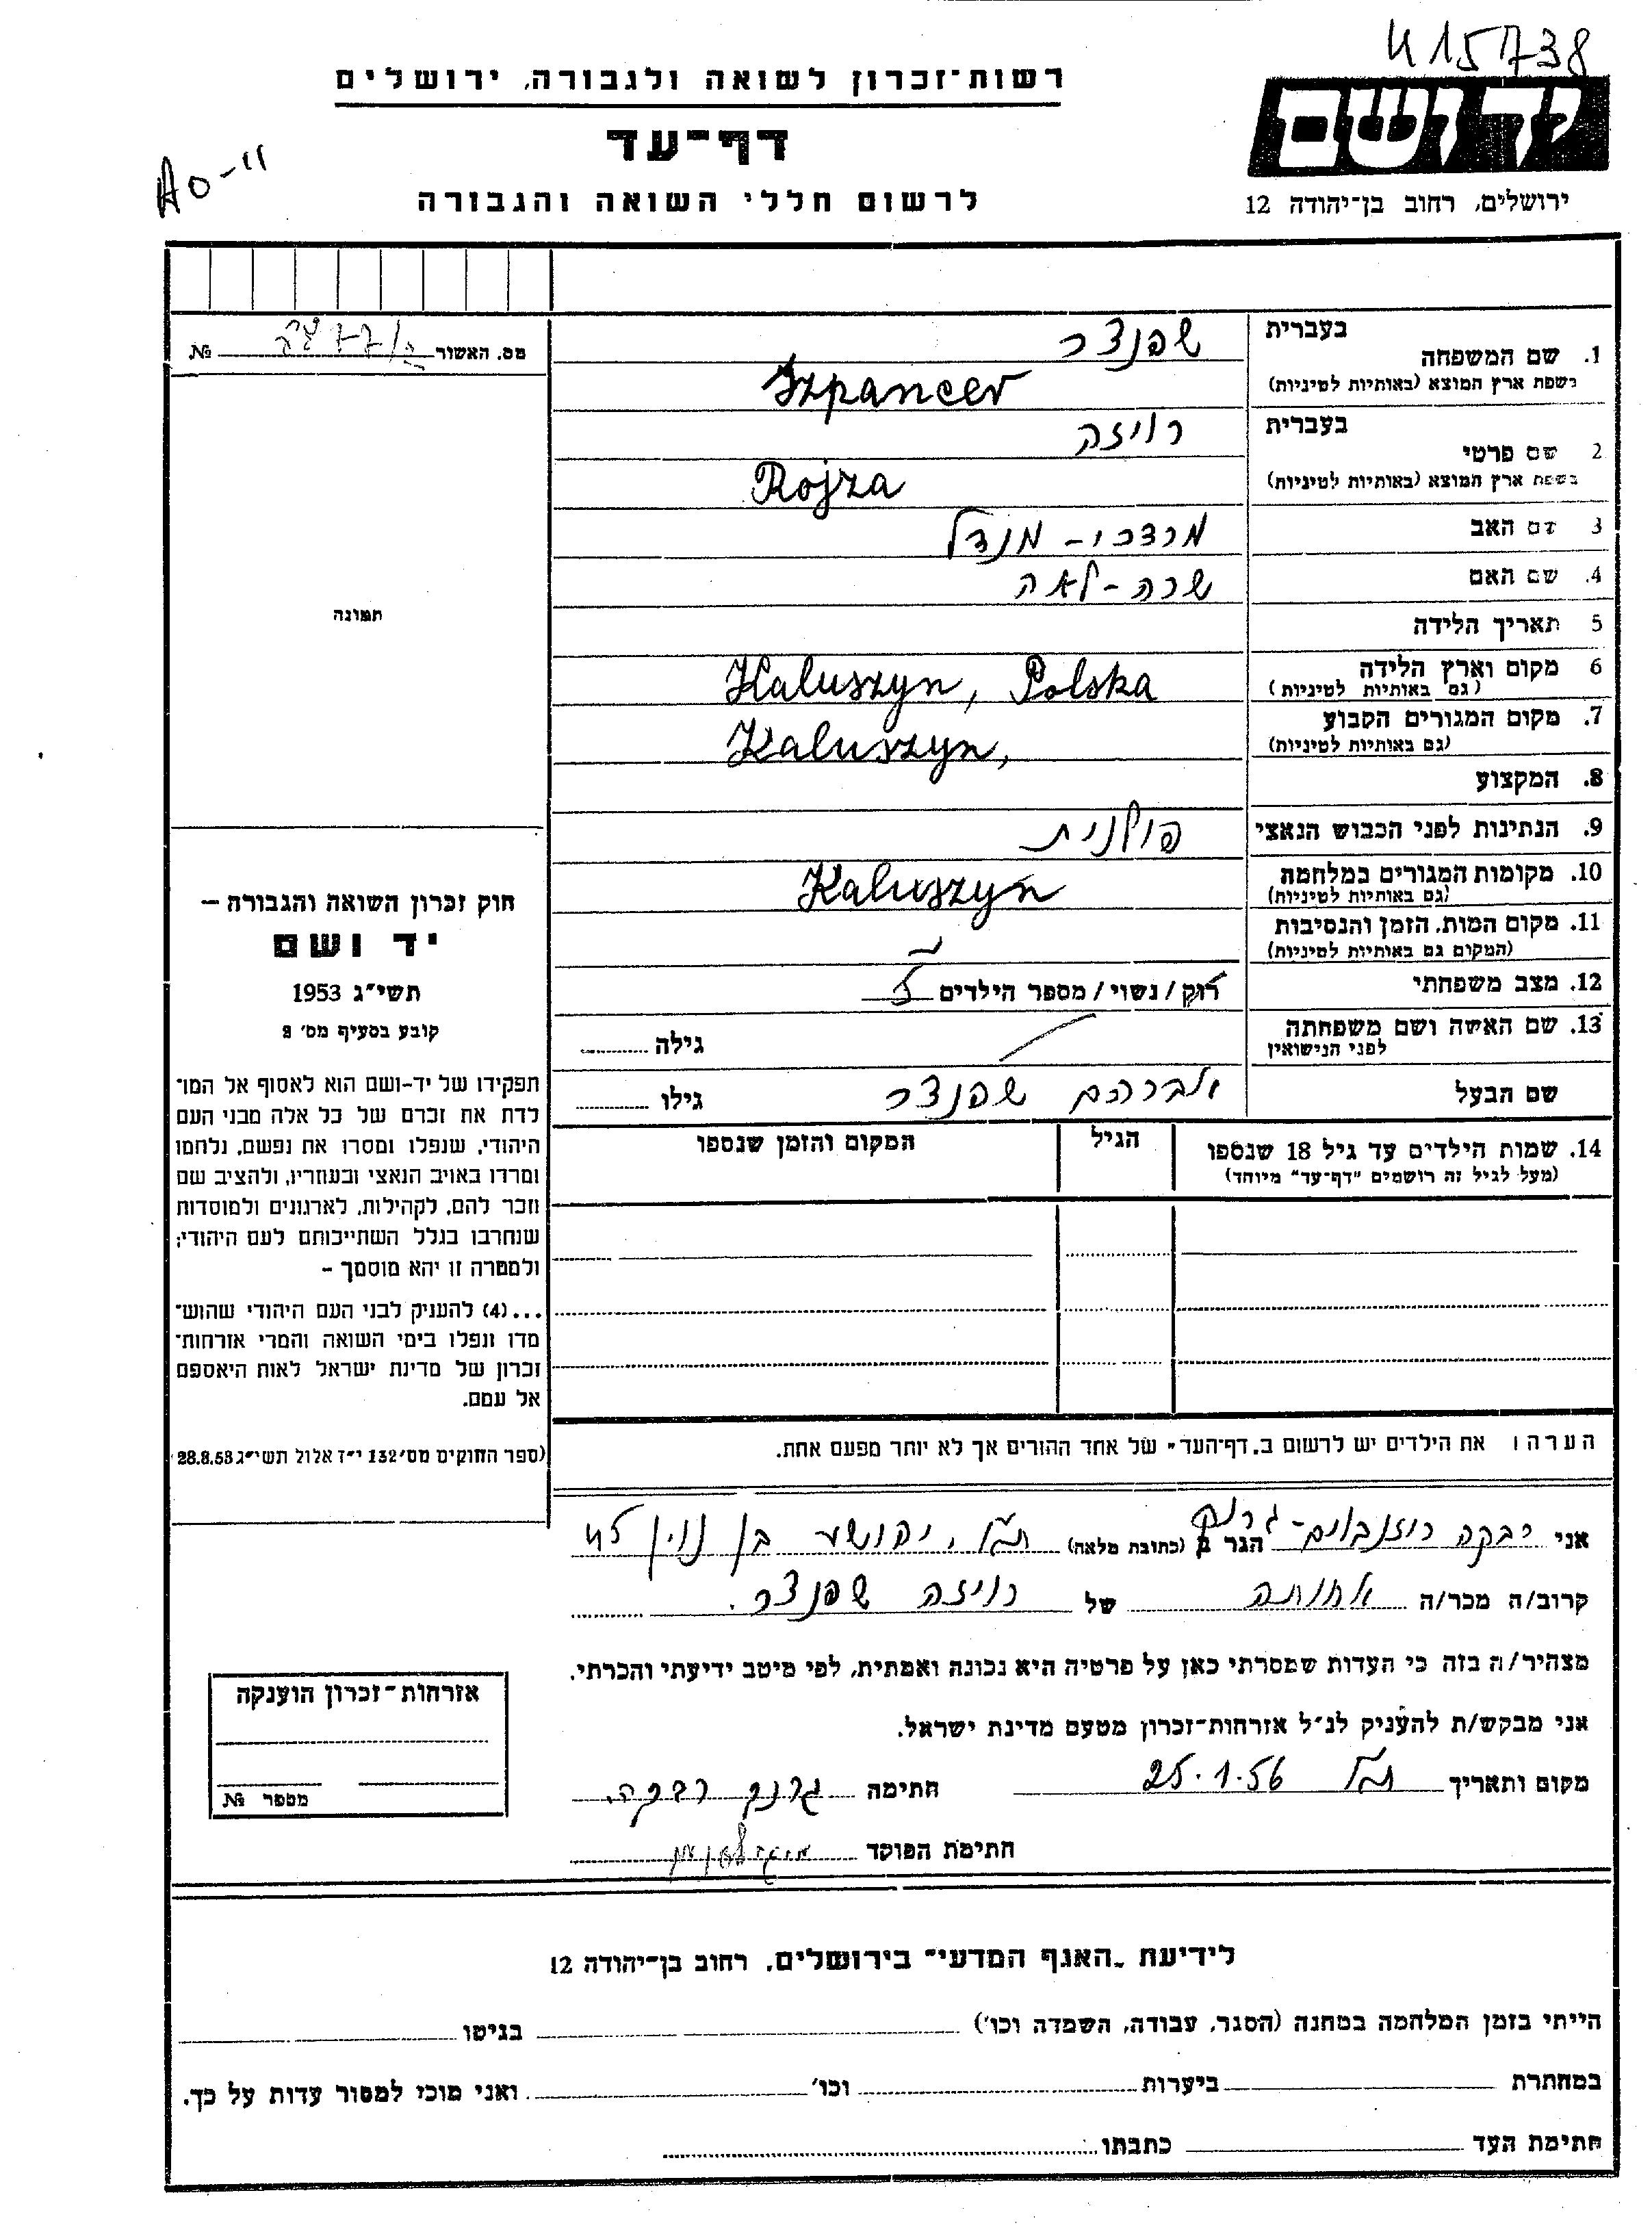 415738
רשות־זכרון לשואה ולגבורה, ירושלים
יד ושם
דף־עד
A0-11
לרשום חללי השואה והגבורה
ירושלים, רחוב בן־יהודה 12
בעברית שפנצר
1. שם המשפחה
בשפת ארץ המוצא (באותיות לטיניות) Szpancer
מס. האשור №
בעברית רויזה
2 שם פרטי
בשפת ארץ המוצא (באותיות לטיניות) Rojza
3 שם האב מרדכי - מנדל
4. שם האם שרה - לאה
5 תאריך הלידה
תמונה
6 מקום וארץ הלידה Kaluszyn, Polska
(גם באותיות לטיניות)
7. מקום המגורים הקבוע Kaluszyn,
(גם באותיות לטיניות)
8. המקצוע
9. הנתינות לפני הכבוש הנאצי פולנית
10. מקומות המגורים במלחמה Kaluszyn
(גם באותיות לטיניות)
11. מקום המות, הזמן והנסיבות
(המקום גם באותיות לטיניות)
12. מצב משפחתי רוק/נשוי/מספר הילדים
13. שם האשה ושם משפחתה גילה
לפני הנישואין
שם הבעל אברהם שפנצר גילו
14. שמות הילדים עד גיל 18 שנספו הגיל המקום והזמן שנספו
(מעל לגיל זה רושמים "דף־עד" מיוחד)
חוק זכרון השואה והגבורה –
יד ושם
תשי"ג 1953
קובע בסעיף מס' 2
תפקידו של יד-ושם הוא לאסוף אל המו־
לדת את זכרם של כל אלה מבני העם
היהודי, שנפלו ומסרו את נפשם, נלחמו
ומרדו באויב הנאצי ובעוזריו, ולהציב שם
וזכר להם, לקהילות, לארגונים ולמוסדות
שנחרבו בגלל השתייכותם לעם היהודי;
ולמטרה זו יהא מוסמך –
...(4) להעניק לבני העם היהודי שהוש־
מדו ונפלו בימי השואה והמרי אזרחות־
זכרון של מדינת ישראל לאות היאספם
אל עמם.
(ספר החוקים מס' 132 י"ז אלול תשי"ג 28.8.53
הערה: את הילדים יש לרשום ב„דף־העד" של אחד ההורים אך לא יותר מפעם אחת.
אני רבקה רוזנבוים - גרנק הגר ב (כתובת מלאה) ת"א, יהושע בן נון
קרוב/ה מכר/ה אחותה של רויזה שפנצר.
מצהיר/ה בזה כי העדות שמסרתי כאן על פרטיה היא נכונה ואמתית, לפי מיטב ידיעתי והכרתי.
אני מבקש/ת להעניק לנ"ל אזרחות־זכרון מטעם מדינת ישראל.
מקום ותאריך ת"א 25.1.56 חתימה גרנק רבקה.
חתימת הפוקד
אזרחות־זכרון הוענקה
מספר №
לידיעת „האגף המדעי" בירושלים, רחוב בן־יהודה 12
הייתי בזמן המלחמה במחנה (הסגר, עבודה, השמדה וכו') בגיטו
במחתרת ביערות וכו' ואני מוכן למסור עדות על כך.
חתימת העד כתבתו